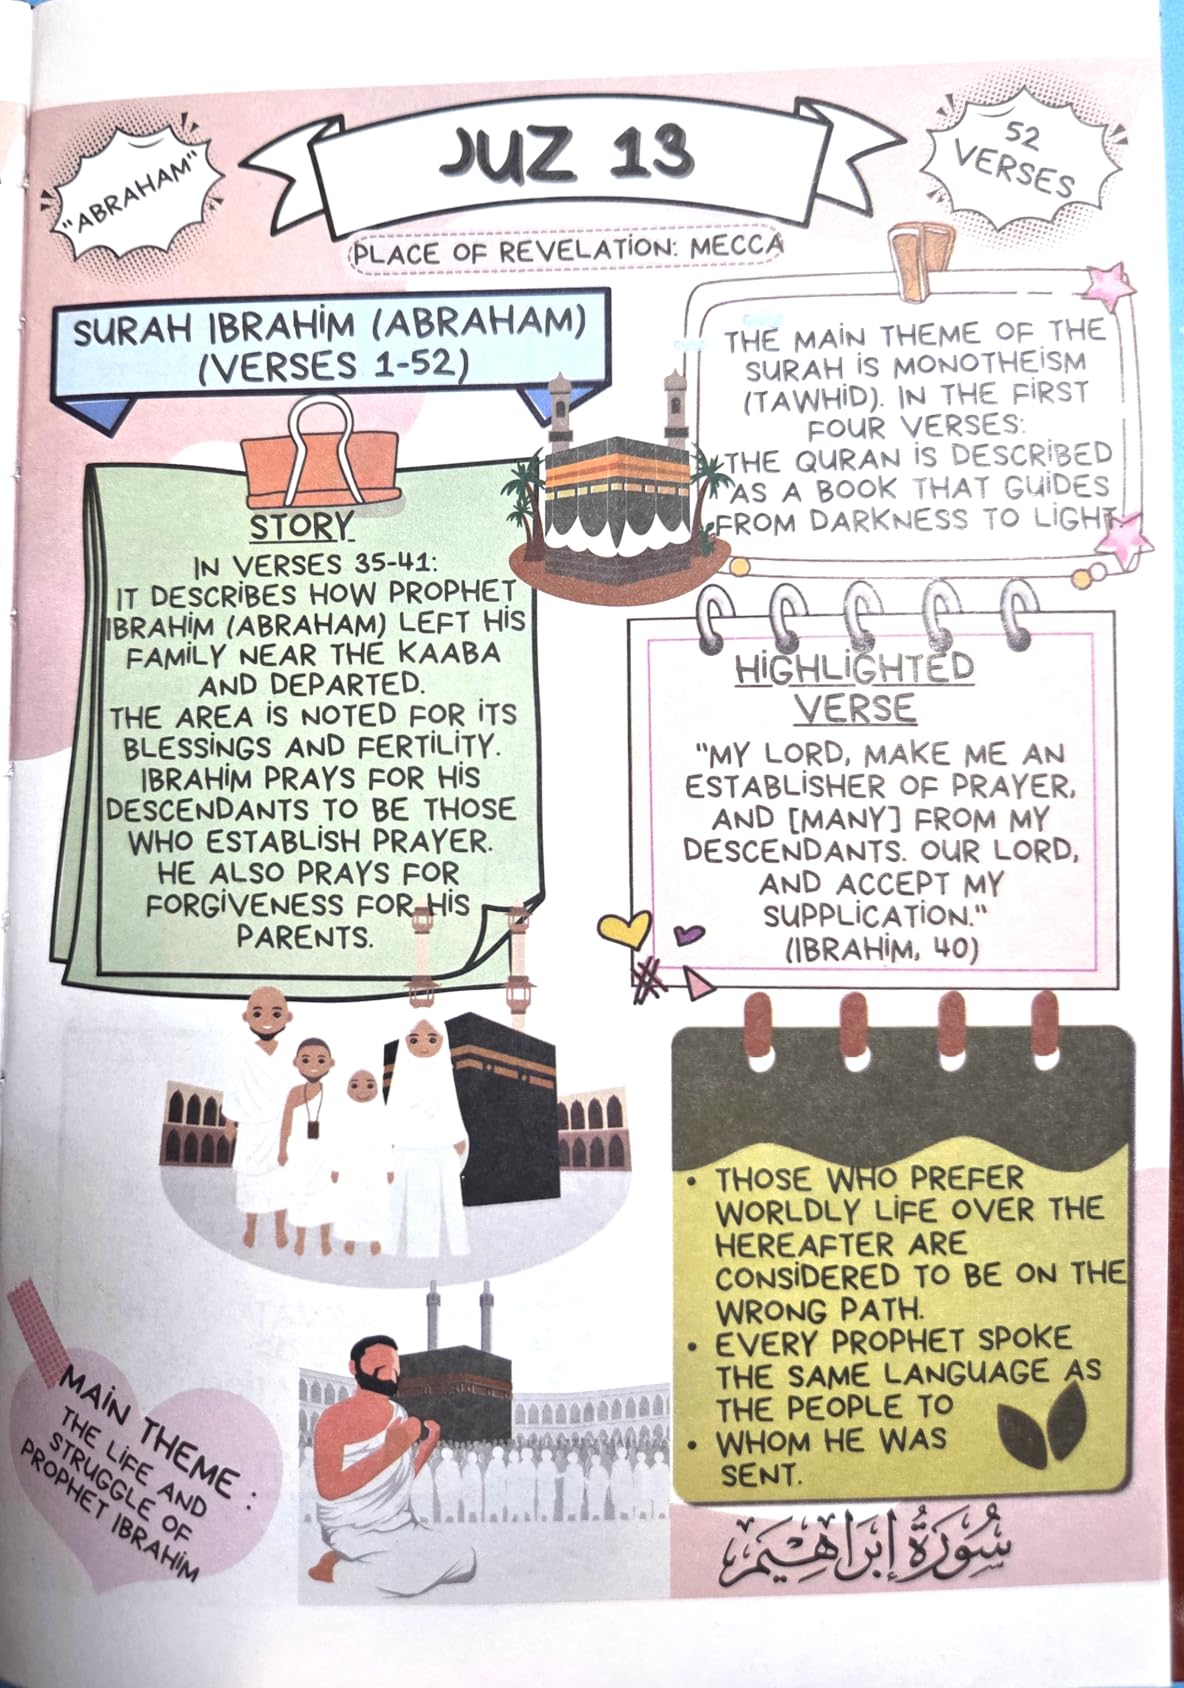 "ABRAHAM"
JUZ 13
52
VERSES
PLACE OF REVELATION: MECCA
SURAH IBRAHIM (ABRAHAM)
(VERSES 1-52)
THE MAIN THEME OF THE
SURAH IS MONOTHEISM
(TAWHID). IN THE FIRST
FOUR VERSES:
THE QURAN IS DESCRIBED
AS A BOOK THAT GUIDES
FROM DARKNESS TO LIGHT
STORY
IN VERSES 35-41:
IT DESCRIBES HOW PROPHET
IBRAHIM (ABRAHAM) LEFT HIS
FAMILY NEAR THE KAABA
AND DEPARTED.
THE AREA IS NOTED FOR ITS
BLESSINGS AND FERTILITY.
IBRAHIM PRAYS FOR HIS
DESCENDANTS TO BE THOSE
WHO ESTABLISH PRAYER.
HE ALSO PRAYS FOR
FORGIVENESS FOR HIS
PARENTS.
HIGHLIGHTED
VERSE
"MY LORD, MAKE ME AN
ESTABLISHER OF PRAYER,
AND [MANY] FROM MY
DESCENDANTS. OUR LORD,
AND ACCEPT MY
SUPPLICATION."
(IBRAHIM, 40)
• THOSE WHO PREFER
WORLDLY LIFE OVER THE
HEREAFTER ARE
CONSIDERED TO BE ON THE
WRONG PATH.
• EVERY PROPHET SPOKE
THE SAME LANGUAGE AS
THE PEOPLE TO
• WHOM HE WAS
SENT.
MAIN THEME :
THE LIFE AND
STRUGGLE OF
PROPHET IBRAHIM
سُورَةُ إِبْرَاهِيْمَ